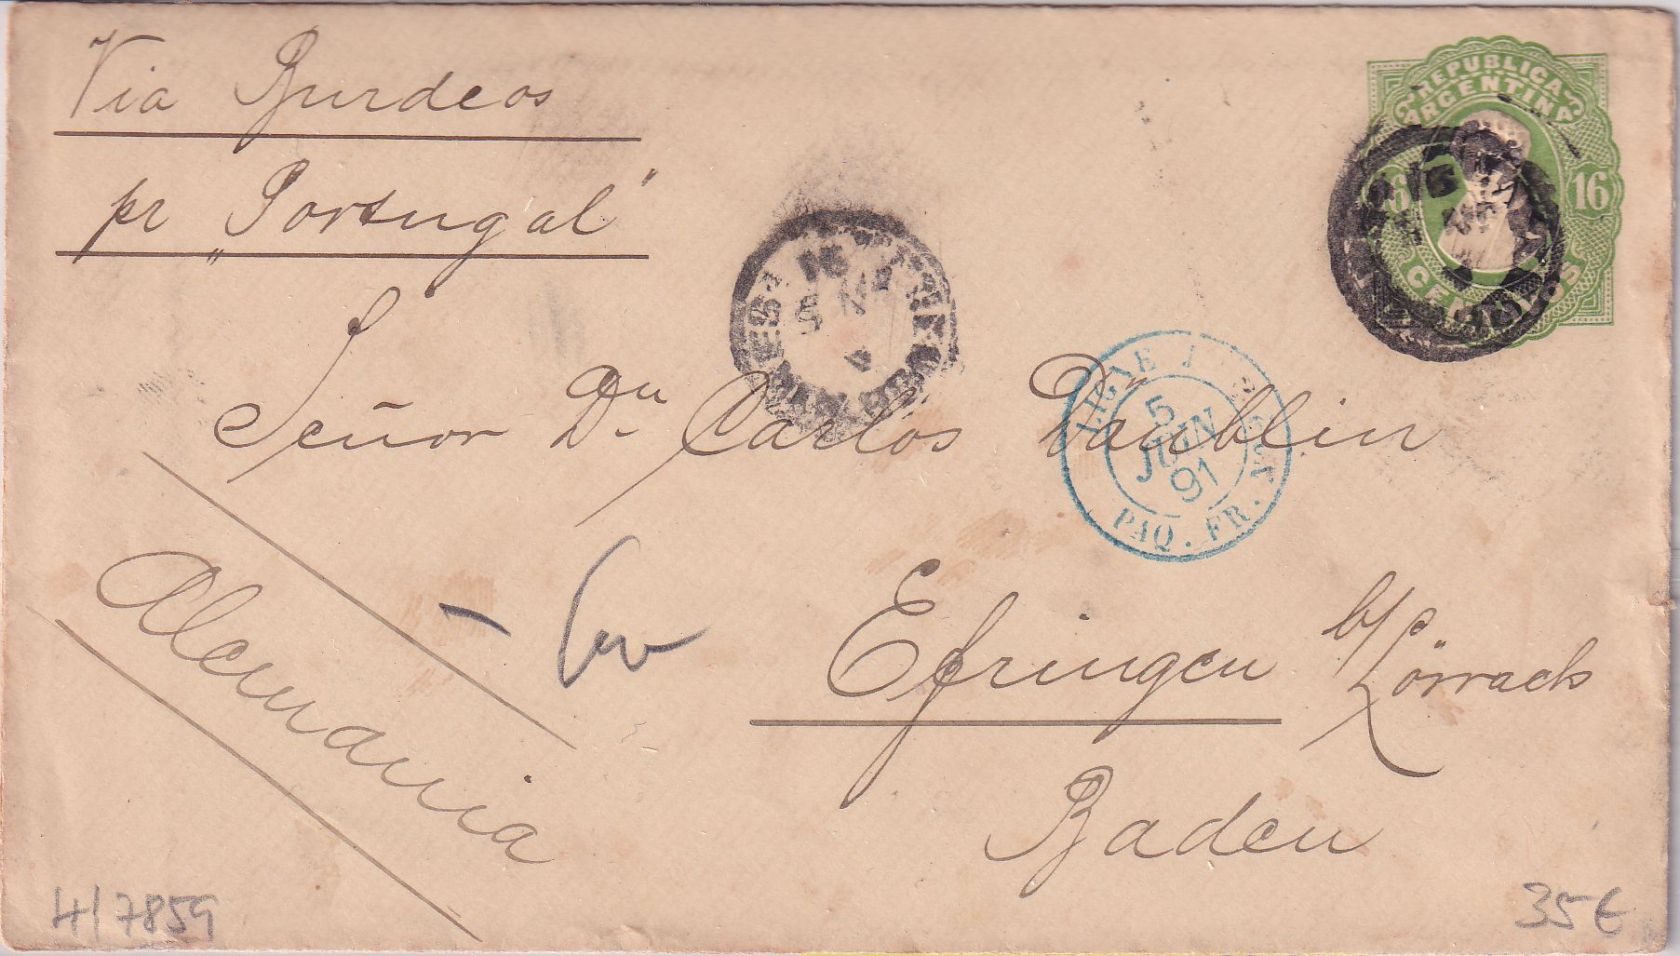 Via Burdeos
pr „Portugal"
REPUBLICA
ARGENTINA
16 16
CENTAVOS
LIGNE J
5
JUIN
91
PAQ. FR.
Señor Dn Carlos Däublin
Alemania
Efringen b/Lörrach
Baden
4/7859
35€